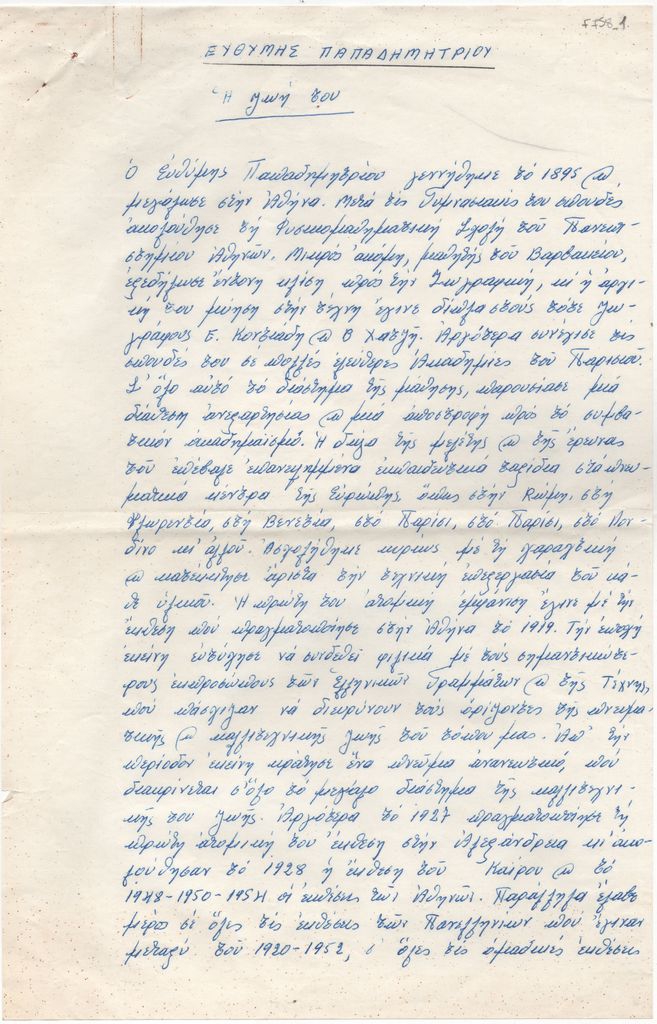 FF58_1
ΕΥΘΥΜΗΣ ΠΑΠΑΔΗΜΗΤΡΙΟΥ
Ἡ ζωή του
Ὁ Εὐθύμης Παπαδημητρίου γεννήθηκε τό 1895 ϗ
μεγάλωσε στήν Ἀθήνα. Μετά τίς Γυμνασιακές του σπουδές
ἀκολούθησε τή Φυσικομαθηματική Σχολή τοῦ Πανεπι-
στημίου Ἀθηνῶν. Μικρός ἀκόμη, μαθητής τοῦ Βαρβακείου,
ἐξεδήλωσε ἔντονη κλίση πρός τήν Ζωγραφική, κι ἡ ἀρχι-
κή του μύηση στήν τέχνη ἔγινε δίπλα στούς τότε ζω-
γράφους Ε. Κοντιάδη ϗ Β Χατζῆ. Ἀργότερα συνέχισε τίς
σπουδές του σε πολλές ἐλεύθερες Ἀκαδημίες τοῦ Παρισιοῦ.
Σ' ὅλο αὐτό τό διάστημα τῆς μάθησης, παρουσίασε μιά
διάθεση ἀνεξαρτησίας ϗ μιά ἀποστροφή πρό τό συμβα-
τικόν ἀκαδημαϊσμό. Ἡ δίψα τῆς μελέτης ϗ τῆς ἔρευνας
τοῦ ἐπέβαλε ἐπανειλημμένα ἐκπαιδευτικά ταξίδια στά πνευ-
ματικά κέντρα τῆς Εὐρώπης, ὅπως στήν Ρώμη, στή
Φλωρεντία, στή Βενετία, στο Παρίσι, στό Παρίσι, στό Λον-
δίνο κι' ἀλλοῦ. Ἀσχολήθηκε κυρίως μέ τή χαρακτική
ϗ κατενόησε ἄριστα τήν τεχνική ἐπεξεργασία τοῦ κά-
θε ὑλικοῦ. Ἡ πρώτη του ἀτομική ἐμφάνιση ἔγινε μέ τήν
ἔκθεση πού πραγματοποίησε στήν Ἀθήνα τό 1919. Τήν ἐποχή
ἐκείνη εὐτύχησε νά συνδεθεῖ φιλικά μέ τούς σημαντικώτε-
ρους ἐκπροσώπους τῶν Ἑλληνικῶν Γραμμάτων ϗ τῆς Τέχνης,
πού πάσχιζαν νά διευρύνουν τούς ὁρίζοντες τῆς πνευμα-
τικῆς ϗ καλλιτεχνικῆς ζωῆς τοῦ τόπου μας. Ἀπ' τήν
περίοδον ἐκείνη κράτησε ἕνα πνεῦμα ἀνανεωτικό, πού
διακρίνεται σ' ὅλο τό μεγάλο διάστημα τῆς καλλιτεχνι-
κῆς του ζωῆς. Ἀργότερα τό 1927 πραγματοποίησε τή
πρώτη ἀτομική του ἔκθεση στήν Ἀλεξάνδρεια κι' ἀκο-
λούθησαν τό 1928 ἡ ἔκθεση τοῦ Καΐρου ϗ τό
1948-1950-1954 οἱ ἐκθέσεις τῶν Ἀθηνῶν. Παράλληλα ἔλαβε
μέρος σέ ὅλες τίς ἐκθέσεις τῶν Πανελληνίων πού ἔγιναν
μεταξύ τοῦ 1920-1952, σ' ὅλες τίς ὁμαδικές ἐκθέσεις